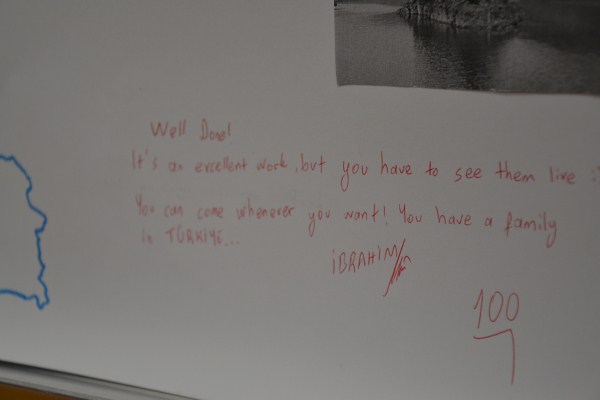 Well Done!
It's an excellent work, but you have to see them live :)
You can come whenever you want! You have a family
in TÜRKİYE...
İBRAHİM
100